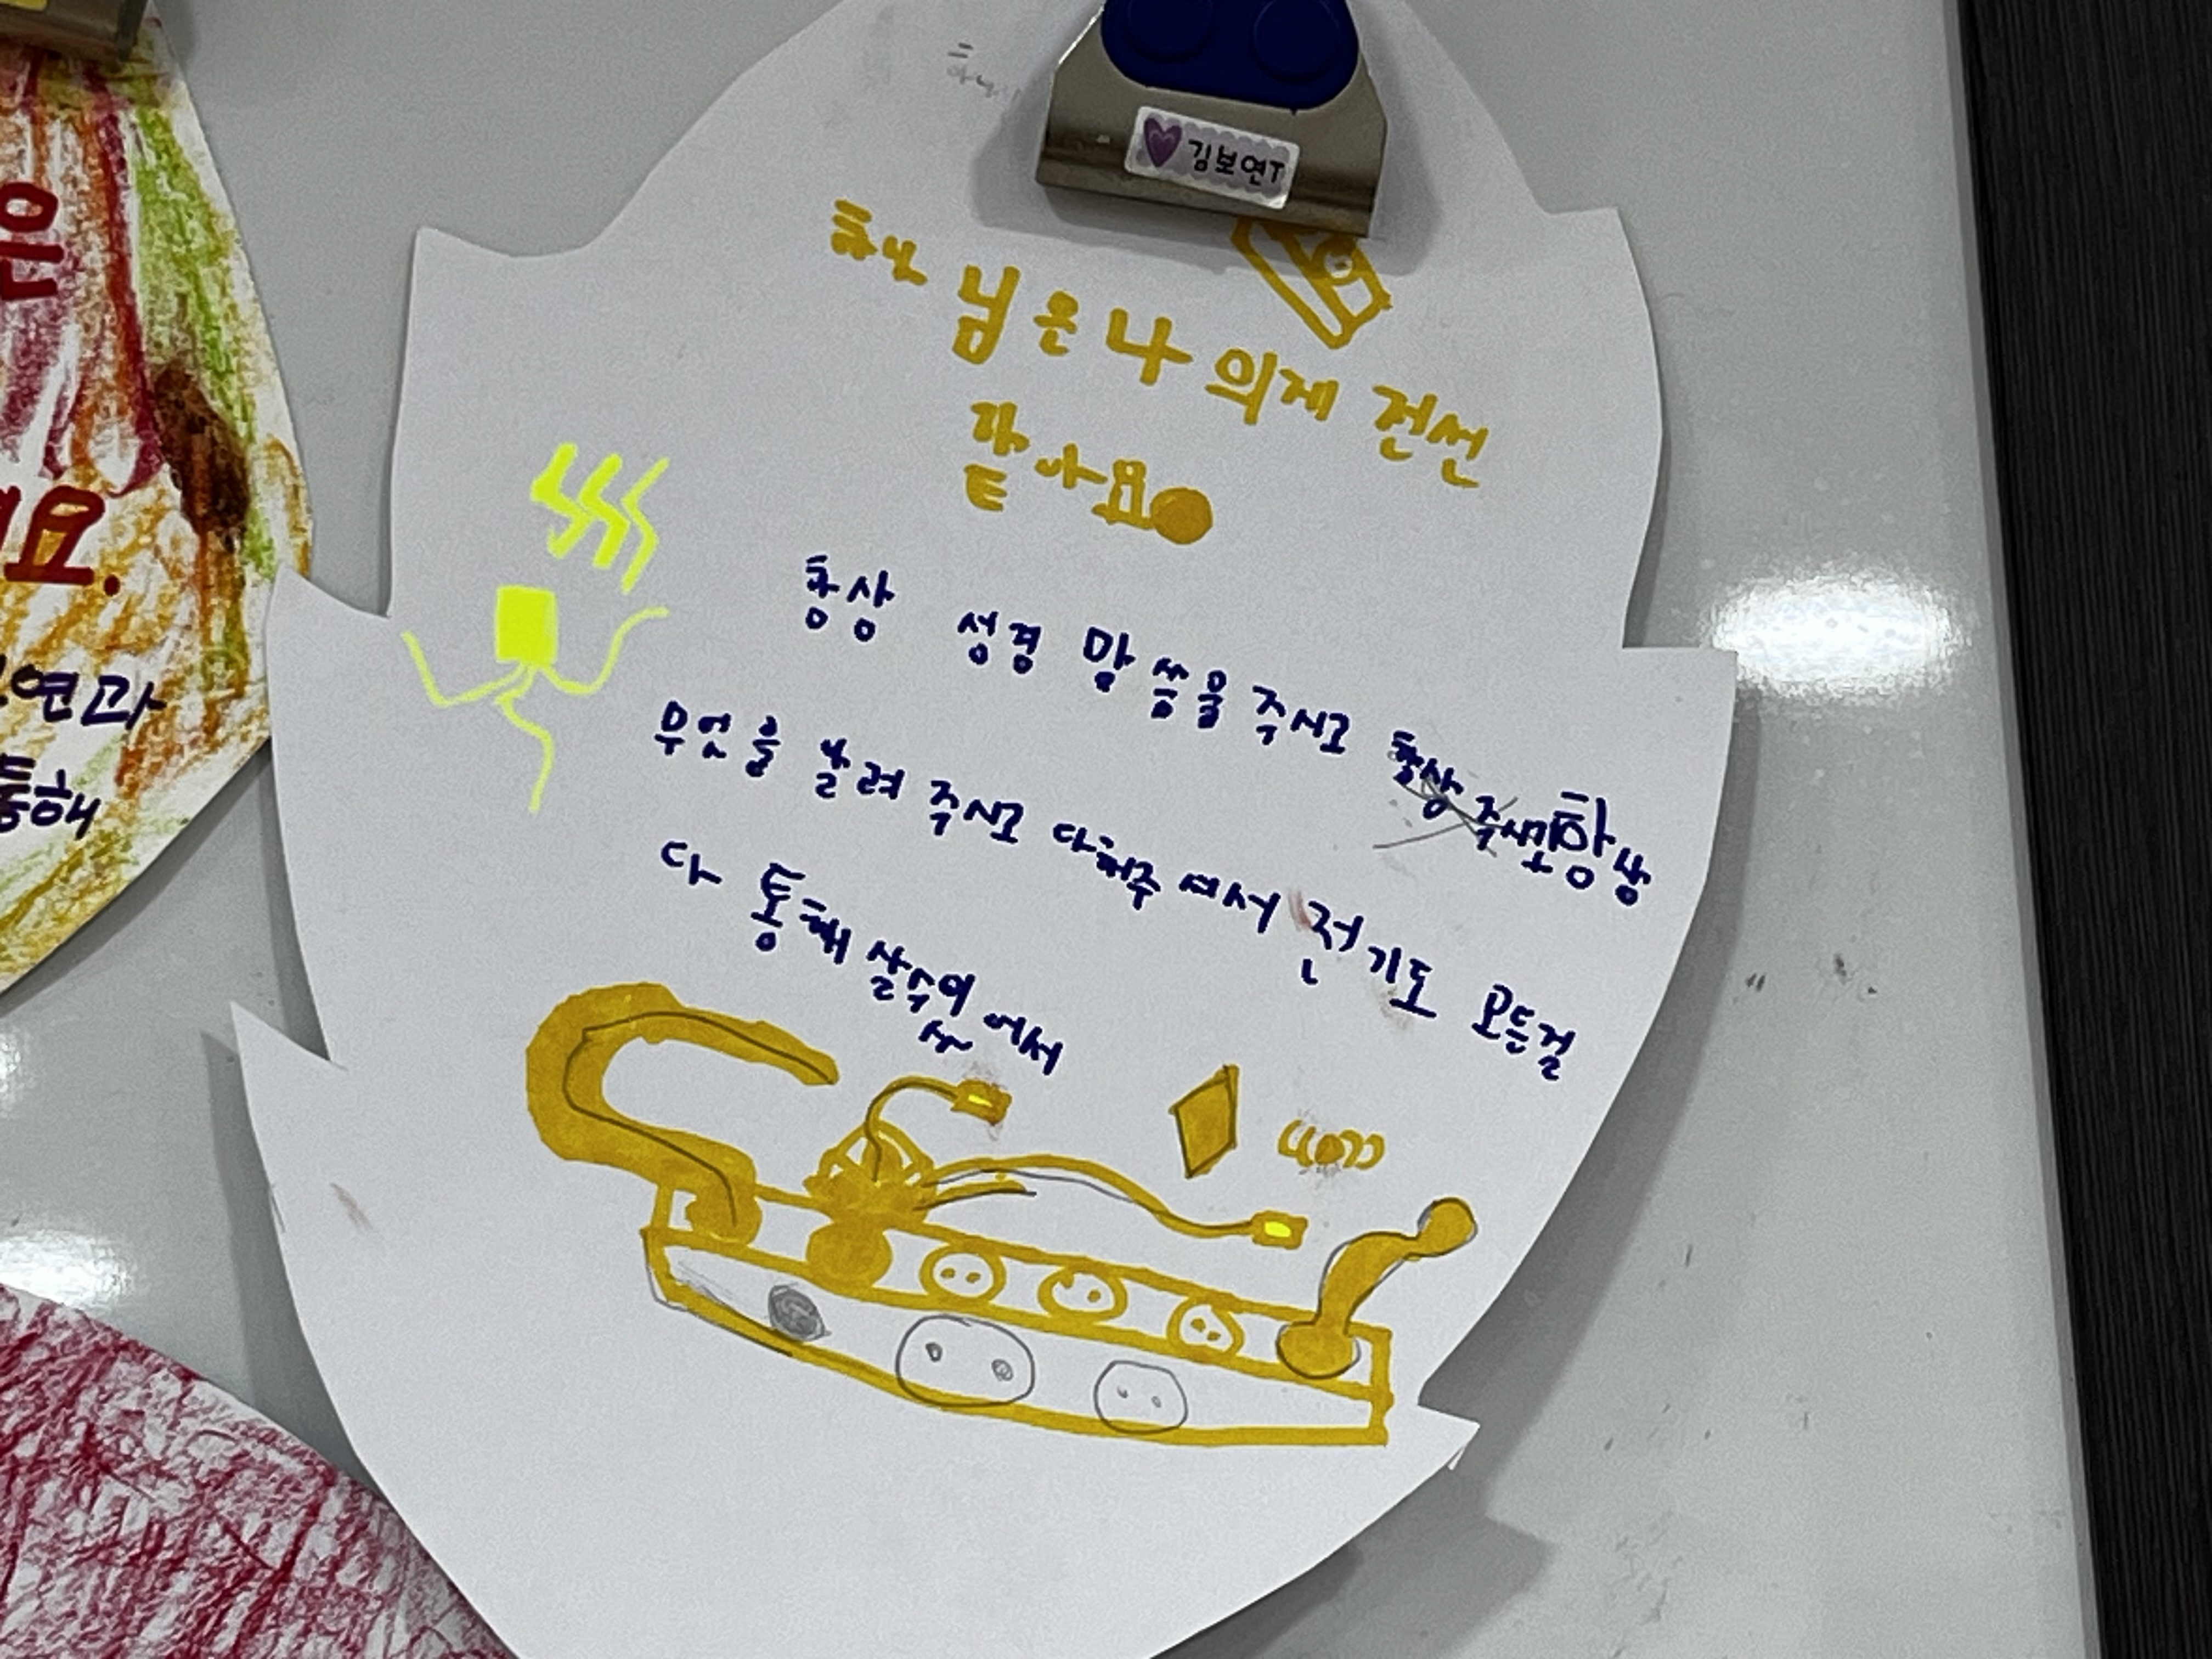 김보연T
하나님은 나의게 전선
같아요
항상 성경 말씀을 주시고 항상
무엇을 날려 주시고 다해주셔서 전기도 모든걸
다 통해 살수 있어서
은
요.
연과
통해